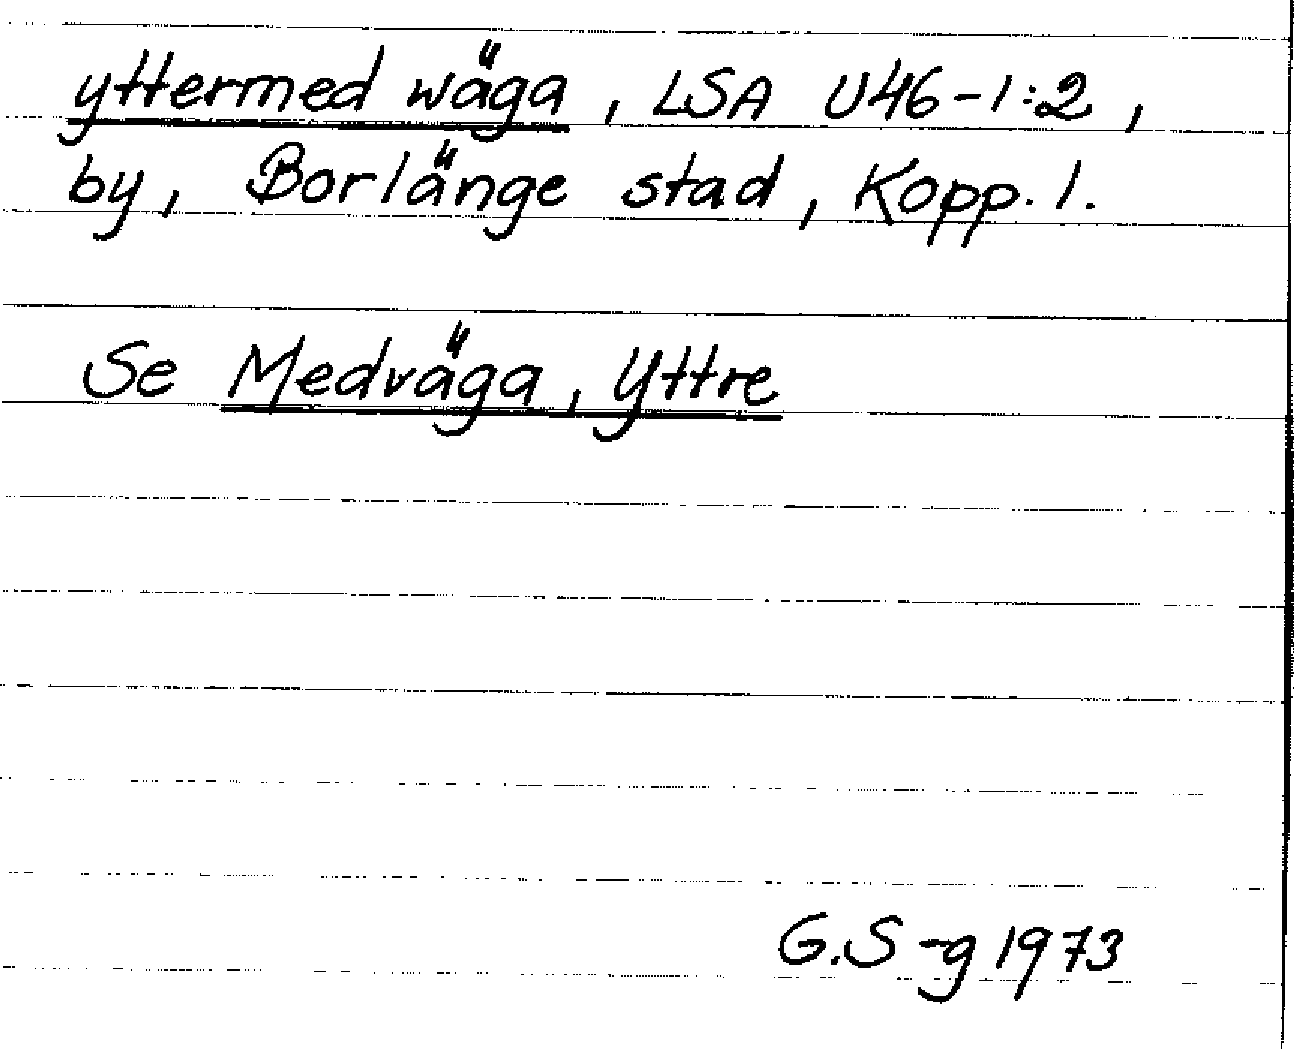 yttermed wäga, LSA U46-1:2,
by, Borlänge stad, Kopp. l.
Se Medväga, Yttre
G.S-g 1973